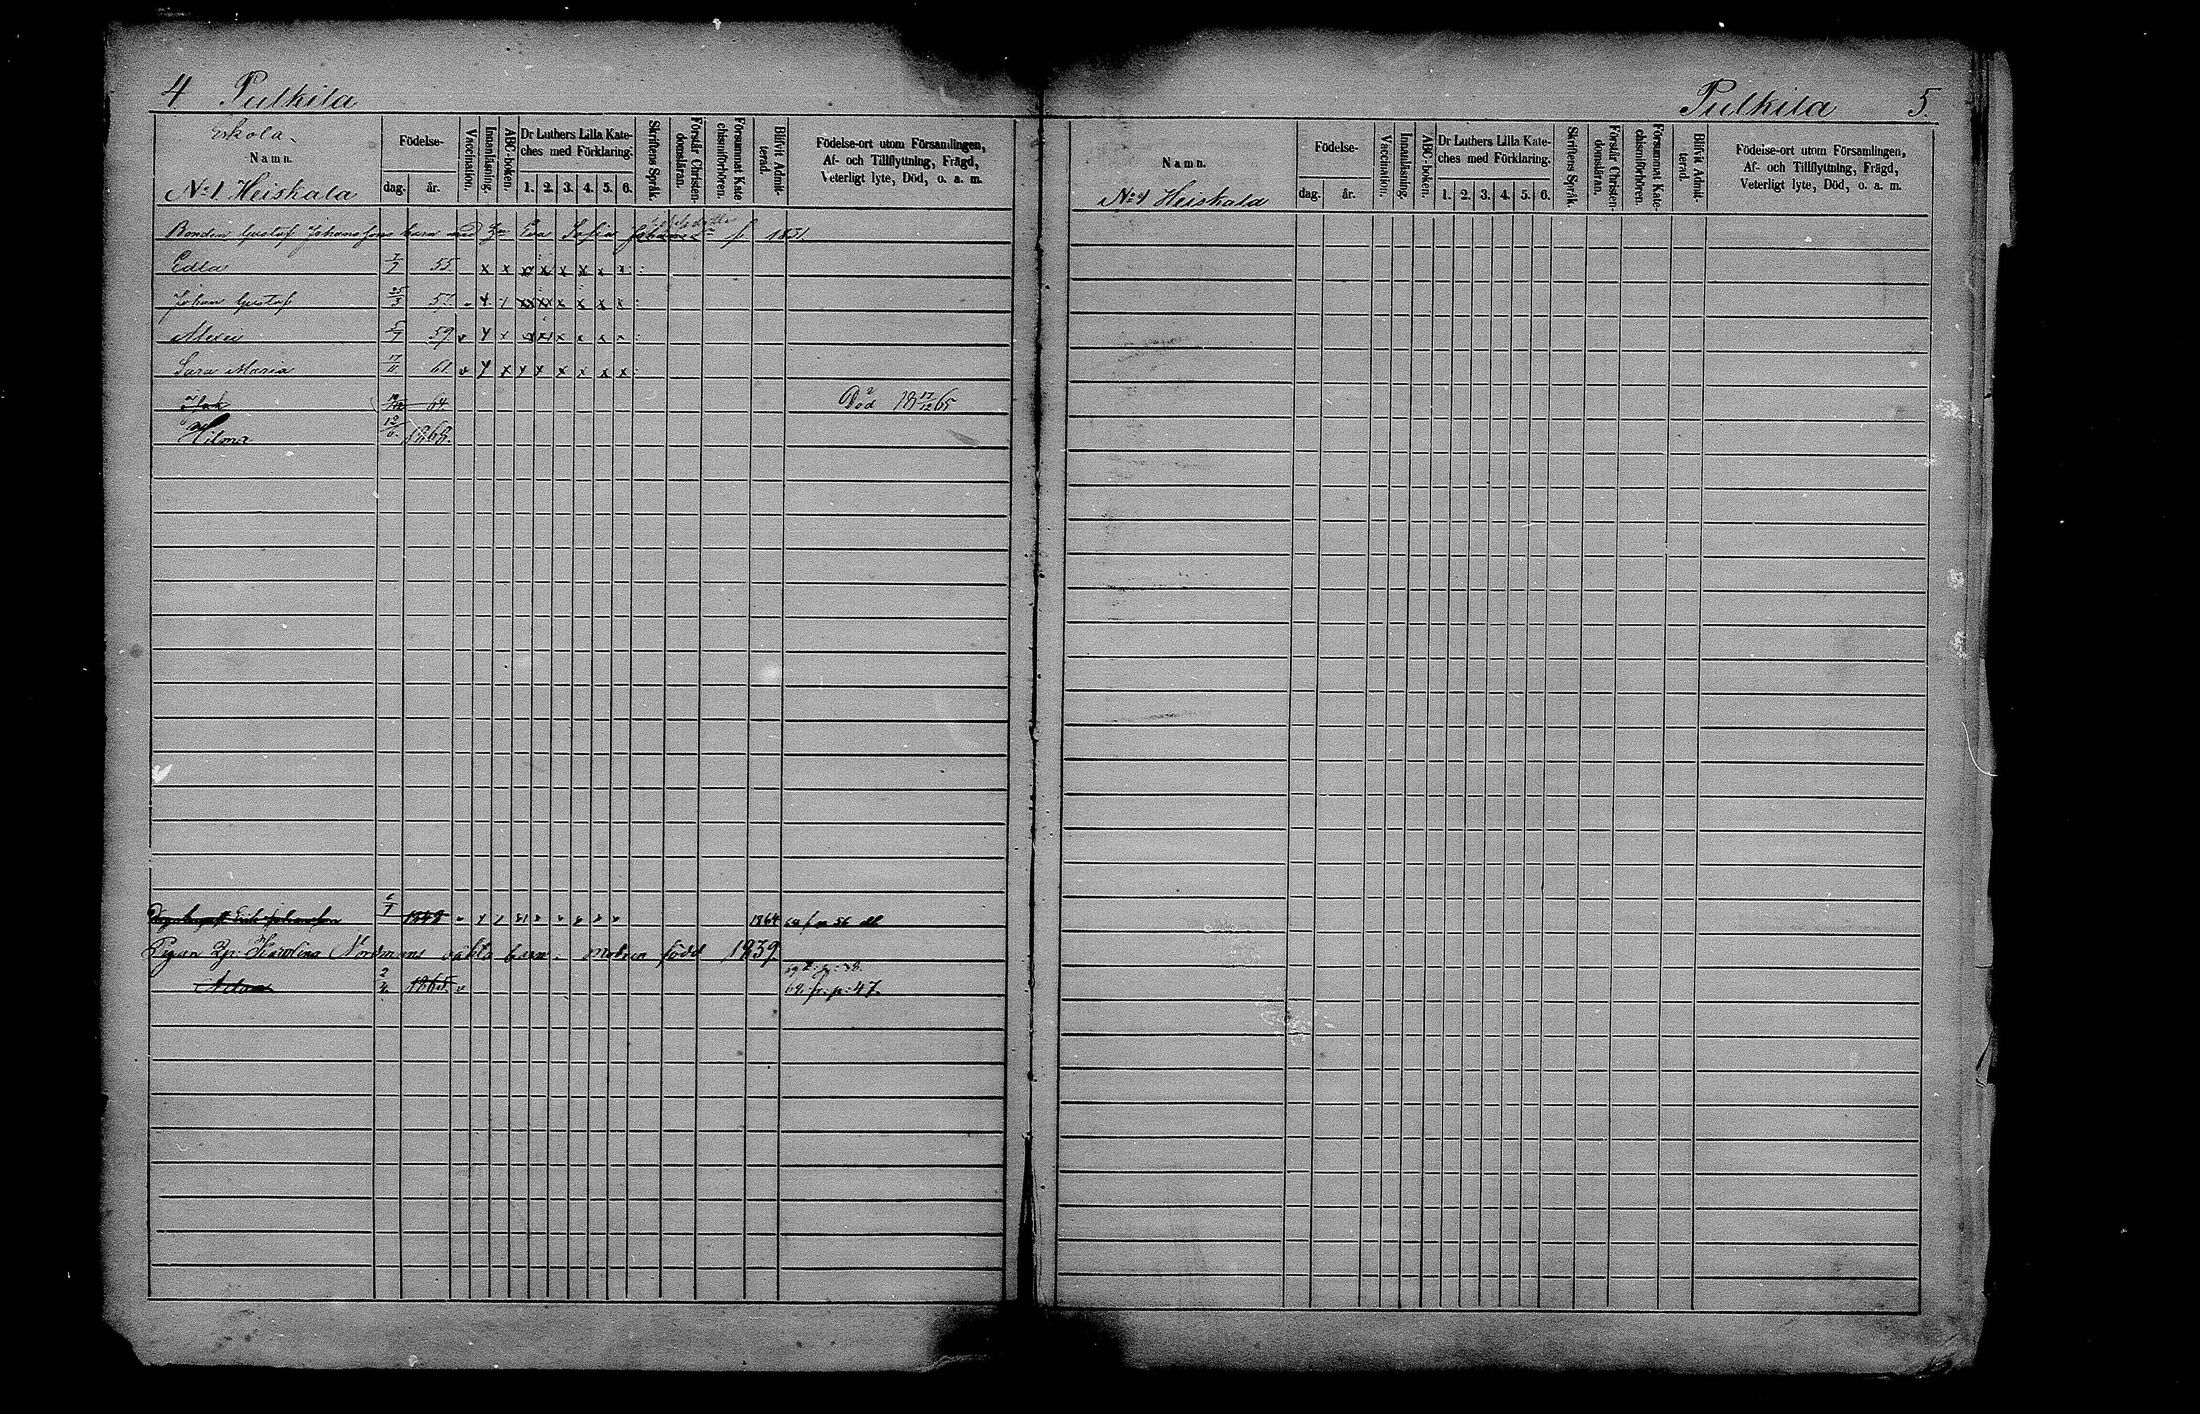 4 Pulkila
Eskola
Namn.
Födelse-
dag. år.
Vaccination.
Innanläsning.
ABC-boken.
Dr Luthers Lilla Kate-
ches med Förklaring.
1. 2. 3. 4. 5. 6.
Skriftens Språk.
Förstår Christen-
domsläran.
Försummat Kate
chismiförhören.
Blifvit Admit-
terad.
Födelse-ort utom Församlingen,
Af- och Tillflyttning, Frägd,
Veterligt lyte, Död, o. a. m.
No 1 Heiskala
Bonden Gustaf Johansson barn med Eva Sofia f. 1831.
Edla 7 55. x x x x x x x x
Johan Gustaf 25/3 57. x x x x x x
5/7 59 x x x x
Sara Maria 17/11 61. x x x x x x x
64. Död 18 17/12 65
Hilma 12/6. 1868.
Erik Johansson 6/7 1848 1864 fr p 56
Pigan Karolina Nordmans oäkta barn. modren född 1839.
2 1865 fr: p: 47.
Pulkila 5.
Namn.
Födelse-
dag. år.
Vaccination.
Innanläsning.
ABC-boken.
Dr Luthers Lilla Kate-
ches med Förklaring.
1. 2. 3. 4. 5. 6.
Skriftens Språk.
Förstår Christen-
domsläran.
Försummat Kate-
chismiförhören.
Blifvit Admit-
terad.
Födelse-ort utom Församlingen,
Af- och Tillflyttning, Frägd,
Veterligt lyte, Död, o. a. m.
No 1 Heiskala